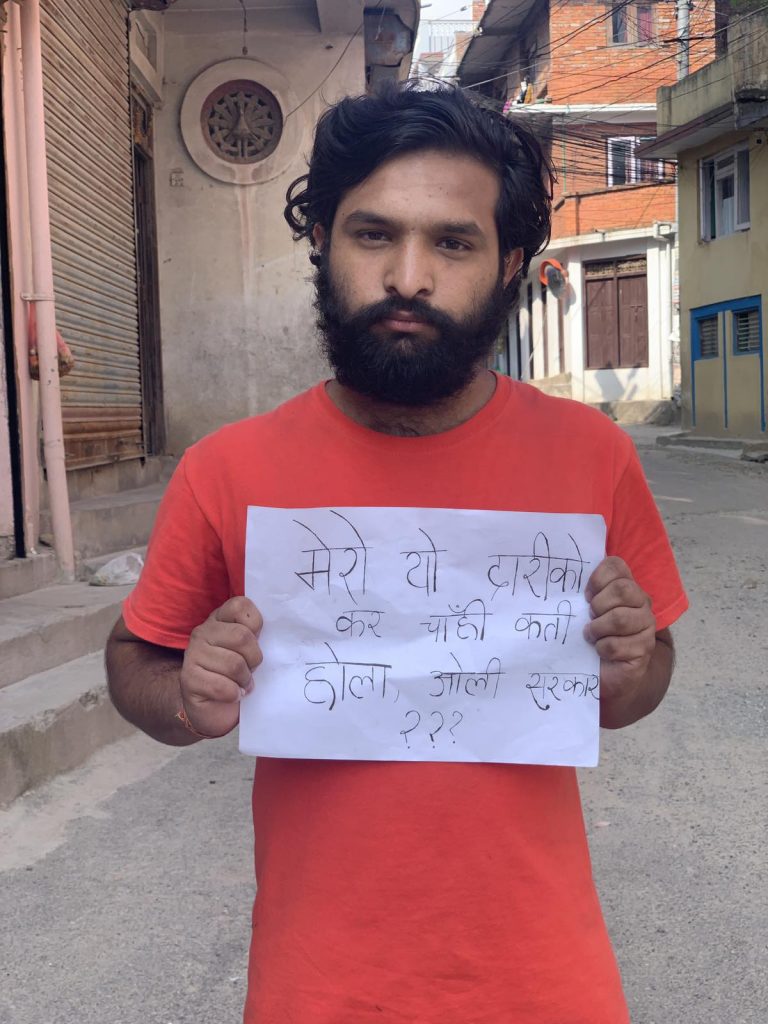 मेरो यो द्रारीको
कर चाँही कती
होला, ओली सरकार
???